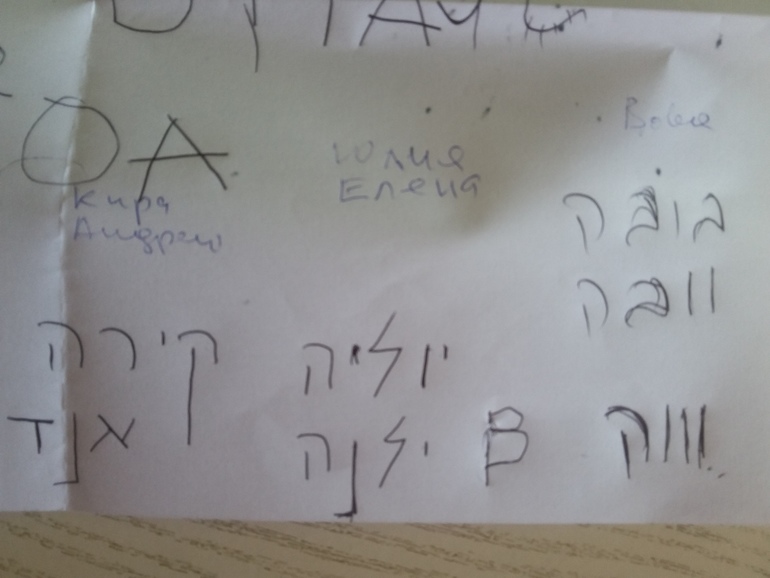 ОА
Кира
Андрею
Юлия
Елена
Вова
בובה
וובה
קירה
אנד
יוליה
ילנה
В
וווה